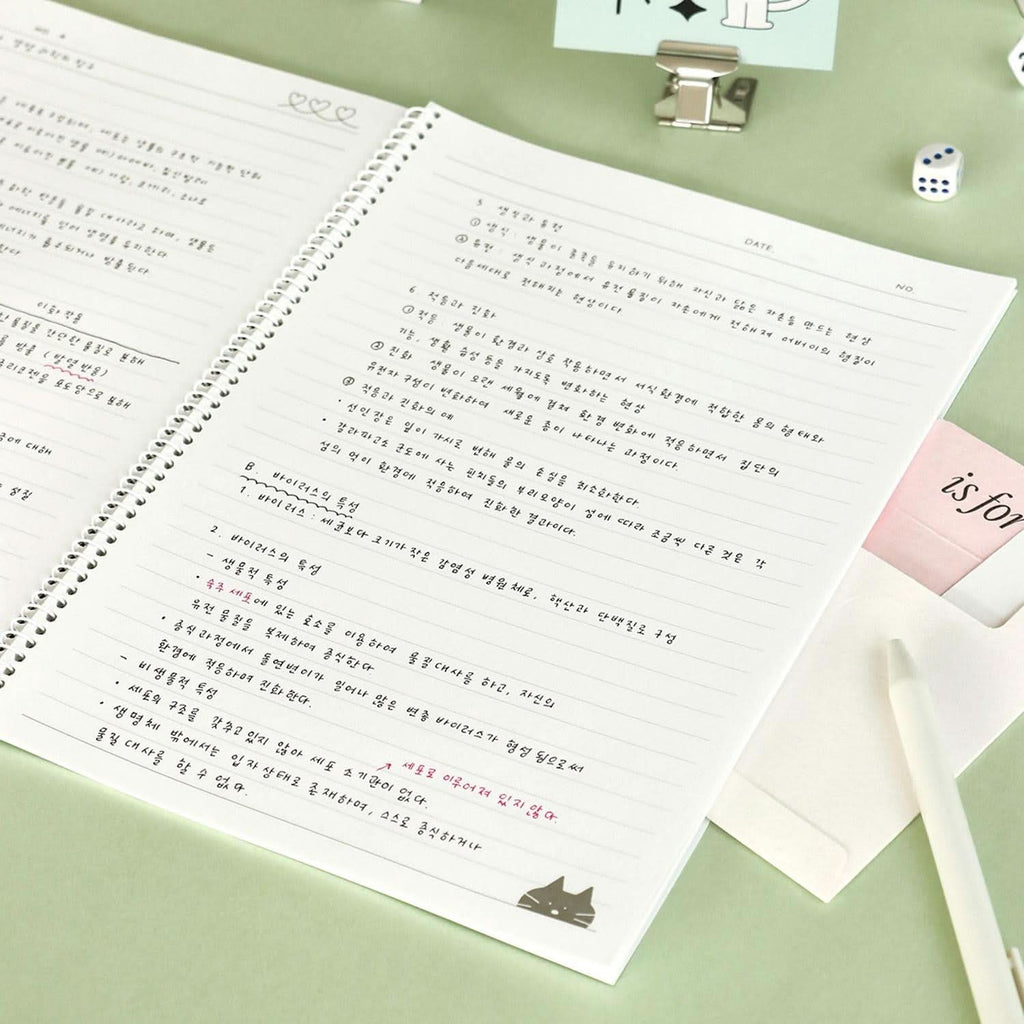 이화 작용
물질을 간단한 물질로 분해
방출 (발열 반응)
글리코젠을 포도당으로 분해
에 대해
성질
DATE.
NO.
5 생식과 유전
① 생식 : 생물이 종족을 유지하기 위해 자신과 닮은 자손을 만드는 현상
② 유전 : 생식 과정에서 유전 물질이 자손에게 전해져 어버이의 형질이
다음세대로 전해지는 현상이다
6 적응과 진화
① 적응 : 생물이 환경과 상호 작용하면서 서식환경에 적합한 몸의 형태와
기능, 생활 습성 등을 가지도록 변화하는 현상
② 진화 생물이 오랜 세월에 걸쳐 환경 변화에 적응하면서 집단의
유전자 구성이 변화하여 새로운 종이 나타나는 과정이다.
③ 적응과 진화의 예
• 선인장은 잎이 가시로 변해 물의 손실을 최소화한다.
• 갈라파고스 군도에 사는 핀치들의 부리모양이 섬에 따라 조금씩 다른 것은 각
섬의 먹이 환경에 적응하여 진화한 결과이다.
B. 바이러스의 특성
1. 바이러스 : 세균보다 크기가 작은 감염성 병원체로, 핵산과 단백질로 구성
2. 바이러스의 특성
- 생물적 특성
• 숙주 세포에 있는 효소를 이용하여 물질대사를 하고, 자신의
유전 물질을 복제하여 증식한다.
• 증식과정에서 돌연변이가 일어나 많은 변종 바이러스가 형성 됨으로써
환경에 적응하며 진화한다.
- 비생물적 특성
• 세포의 구조를 갖추고있지 않아 세포 소기관이 없다.
↗ 세포로 이루어져 있지 않다.
• 생명체 밖에서는 입자상태로 존재하며, 스스로 증식하거나
물질대사를 할 수 없다.
is for